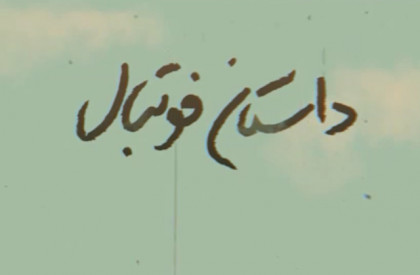 داستان فوتبال